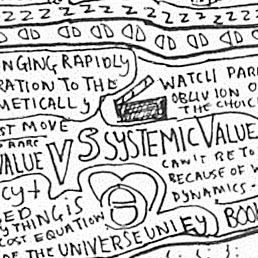 ZZZZZZZZZZZ
NGING RAPIDLY
RATION TO THE
METICALLY
WATCH PAR
OBLIVION O
THE CHOIC
ST MOVE
VALUE V S SYSTEMIC VALUE
CAN'T BE TO
BECAUSE OF
DYNAMICS -
CY +
ED
YTHING IS
COST EQUATION
OF THE UNIVERSE UNLEY
BOO